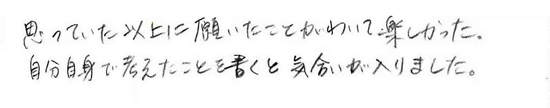 思っていた以上に願いたことがわいて楽しかった。
自分自身で考えたことを書くと気合いが入りました。